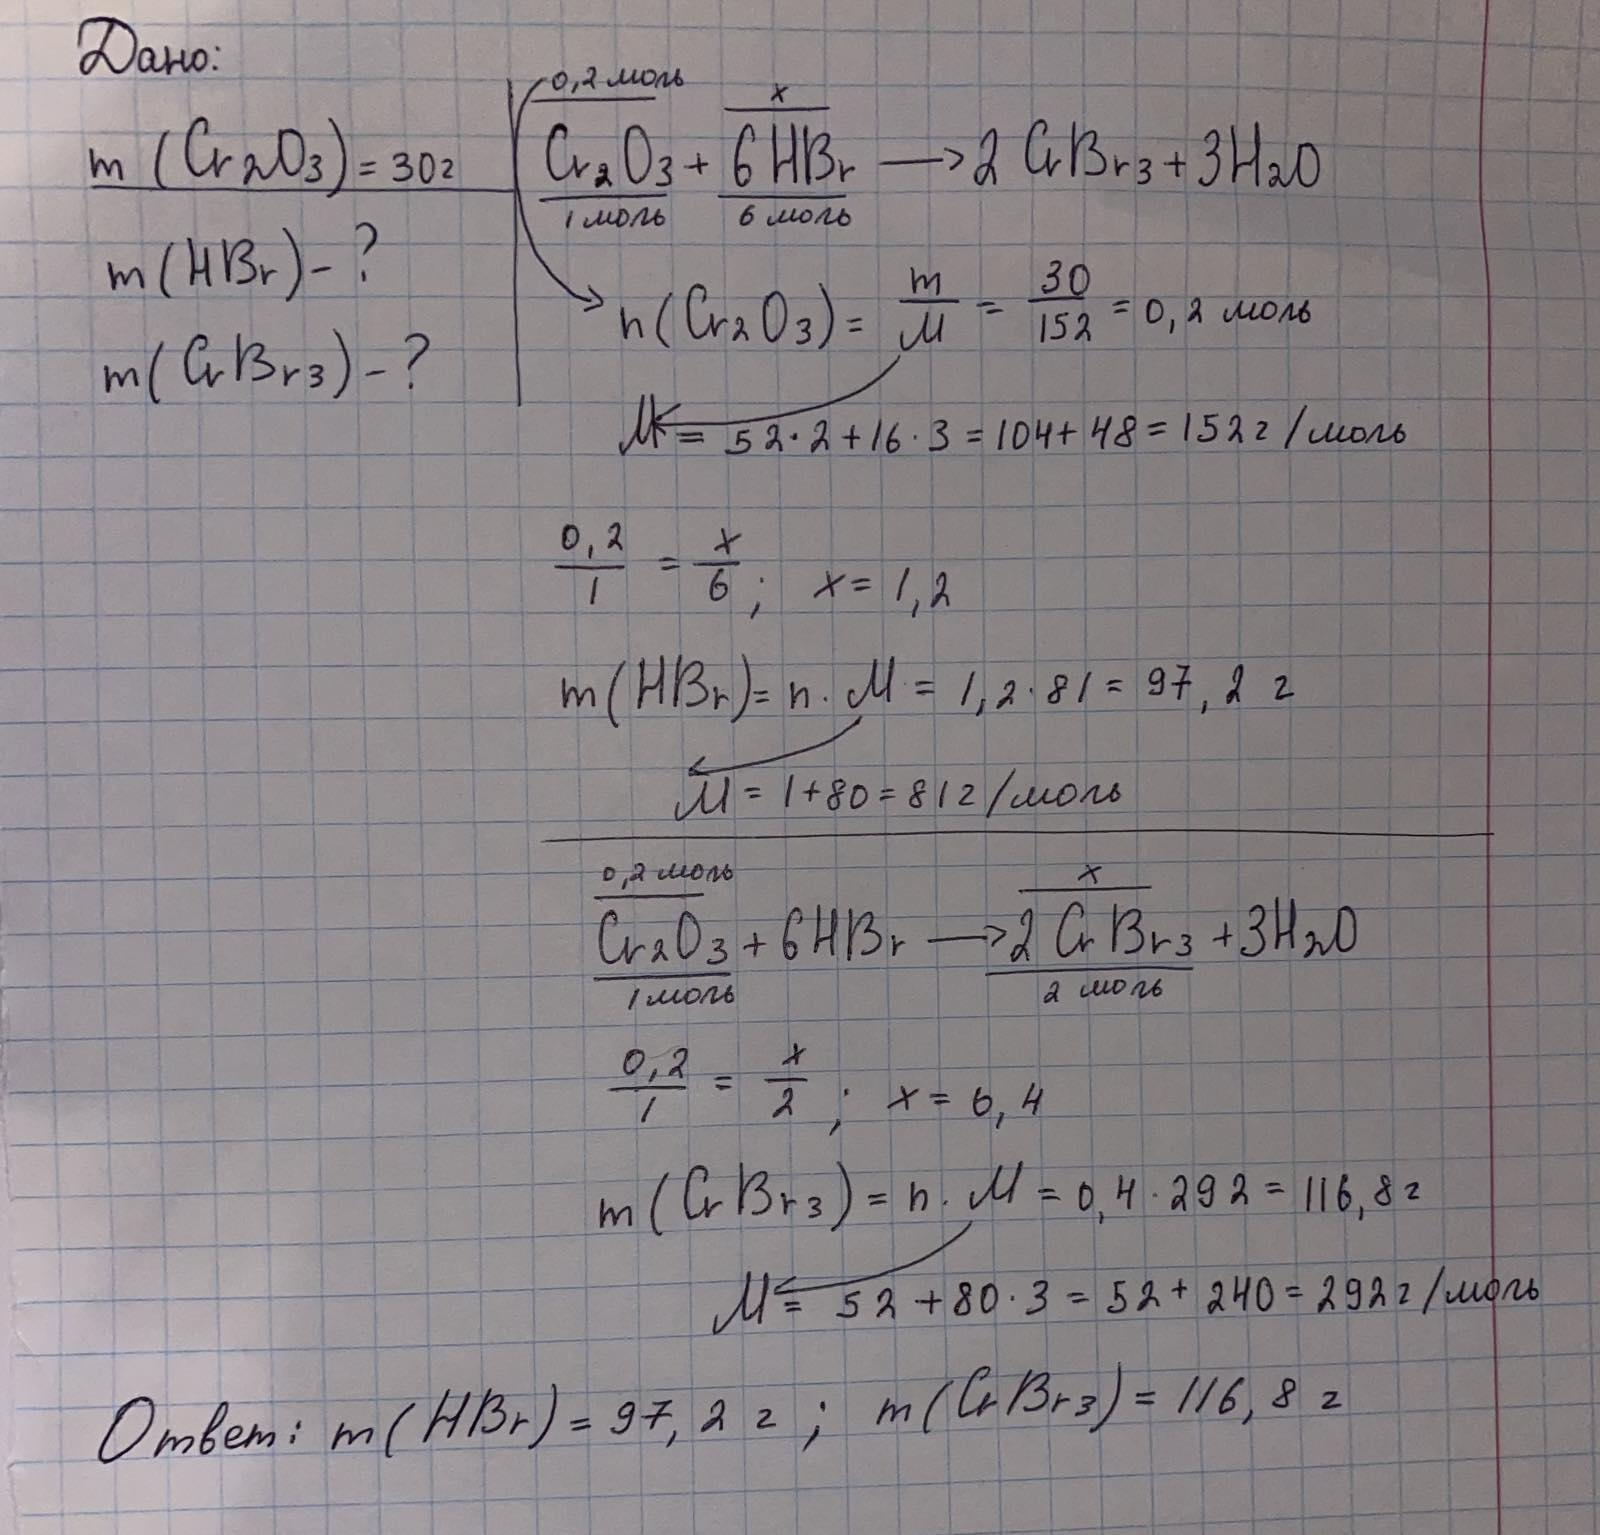 Дано:
m(Cr2O3) = 30г
m(HBr) - ?
m(CrBr3) - ?
0,2 моль x
Cr2O3 + 6HBr → 2CrBr3 + 3H2O
1 моль 6 моль
n(Cr2O3) = m/M = 30/152 = 0,2 моль
M = 52·2 + 16·3 = 104 + 48 = 152 г/моль
0,2/1 = x/6; x = 1,2
m(HBr) = n·M = 1,2·81 = 97,2 г
M = 1 + 80 = 81 г/моль
0,2 моль x
Cr2O3 + 6HBr → 2CrBr3 + 3H2O
1 моль 2 моль
0,2/1 = x/2; x = 0,4
m(CrBr3) = n·M = 0,4·292 = 116,8 г
M = 52 + 80·3 = 52 + 240 = 292 г/моль
Ответ: m(HBr) = 97,2 г; m(CrBr3) = 116,8 г